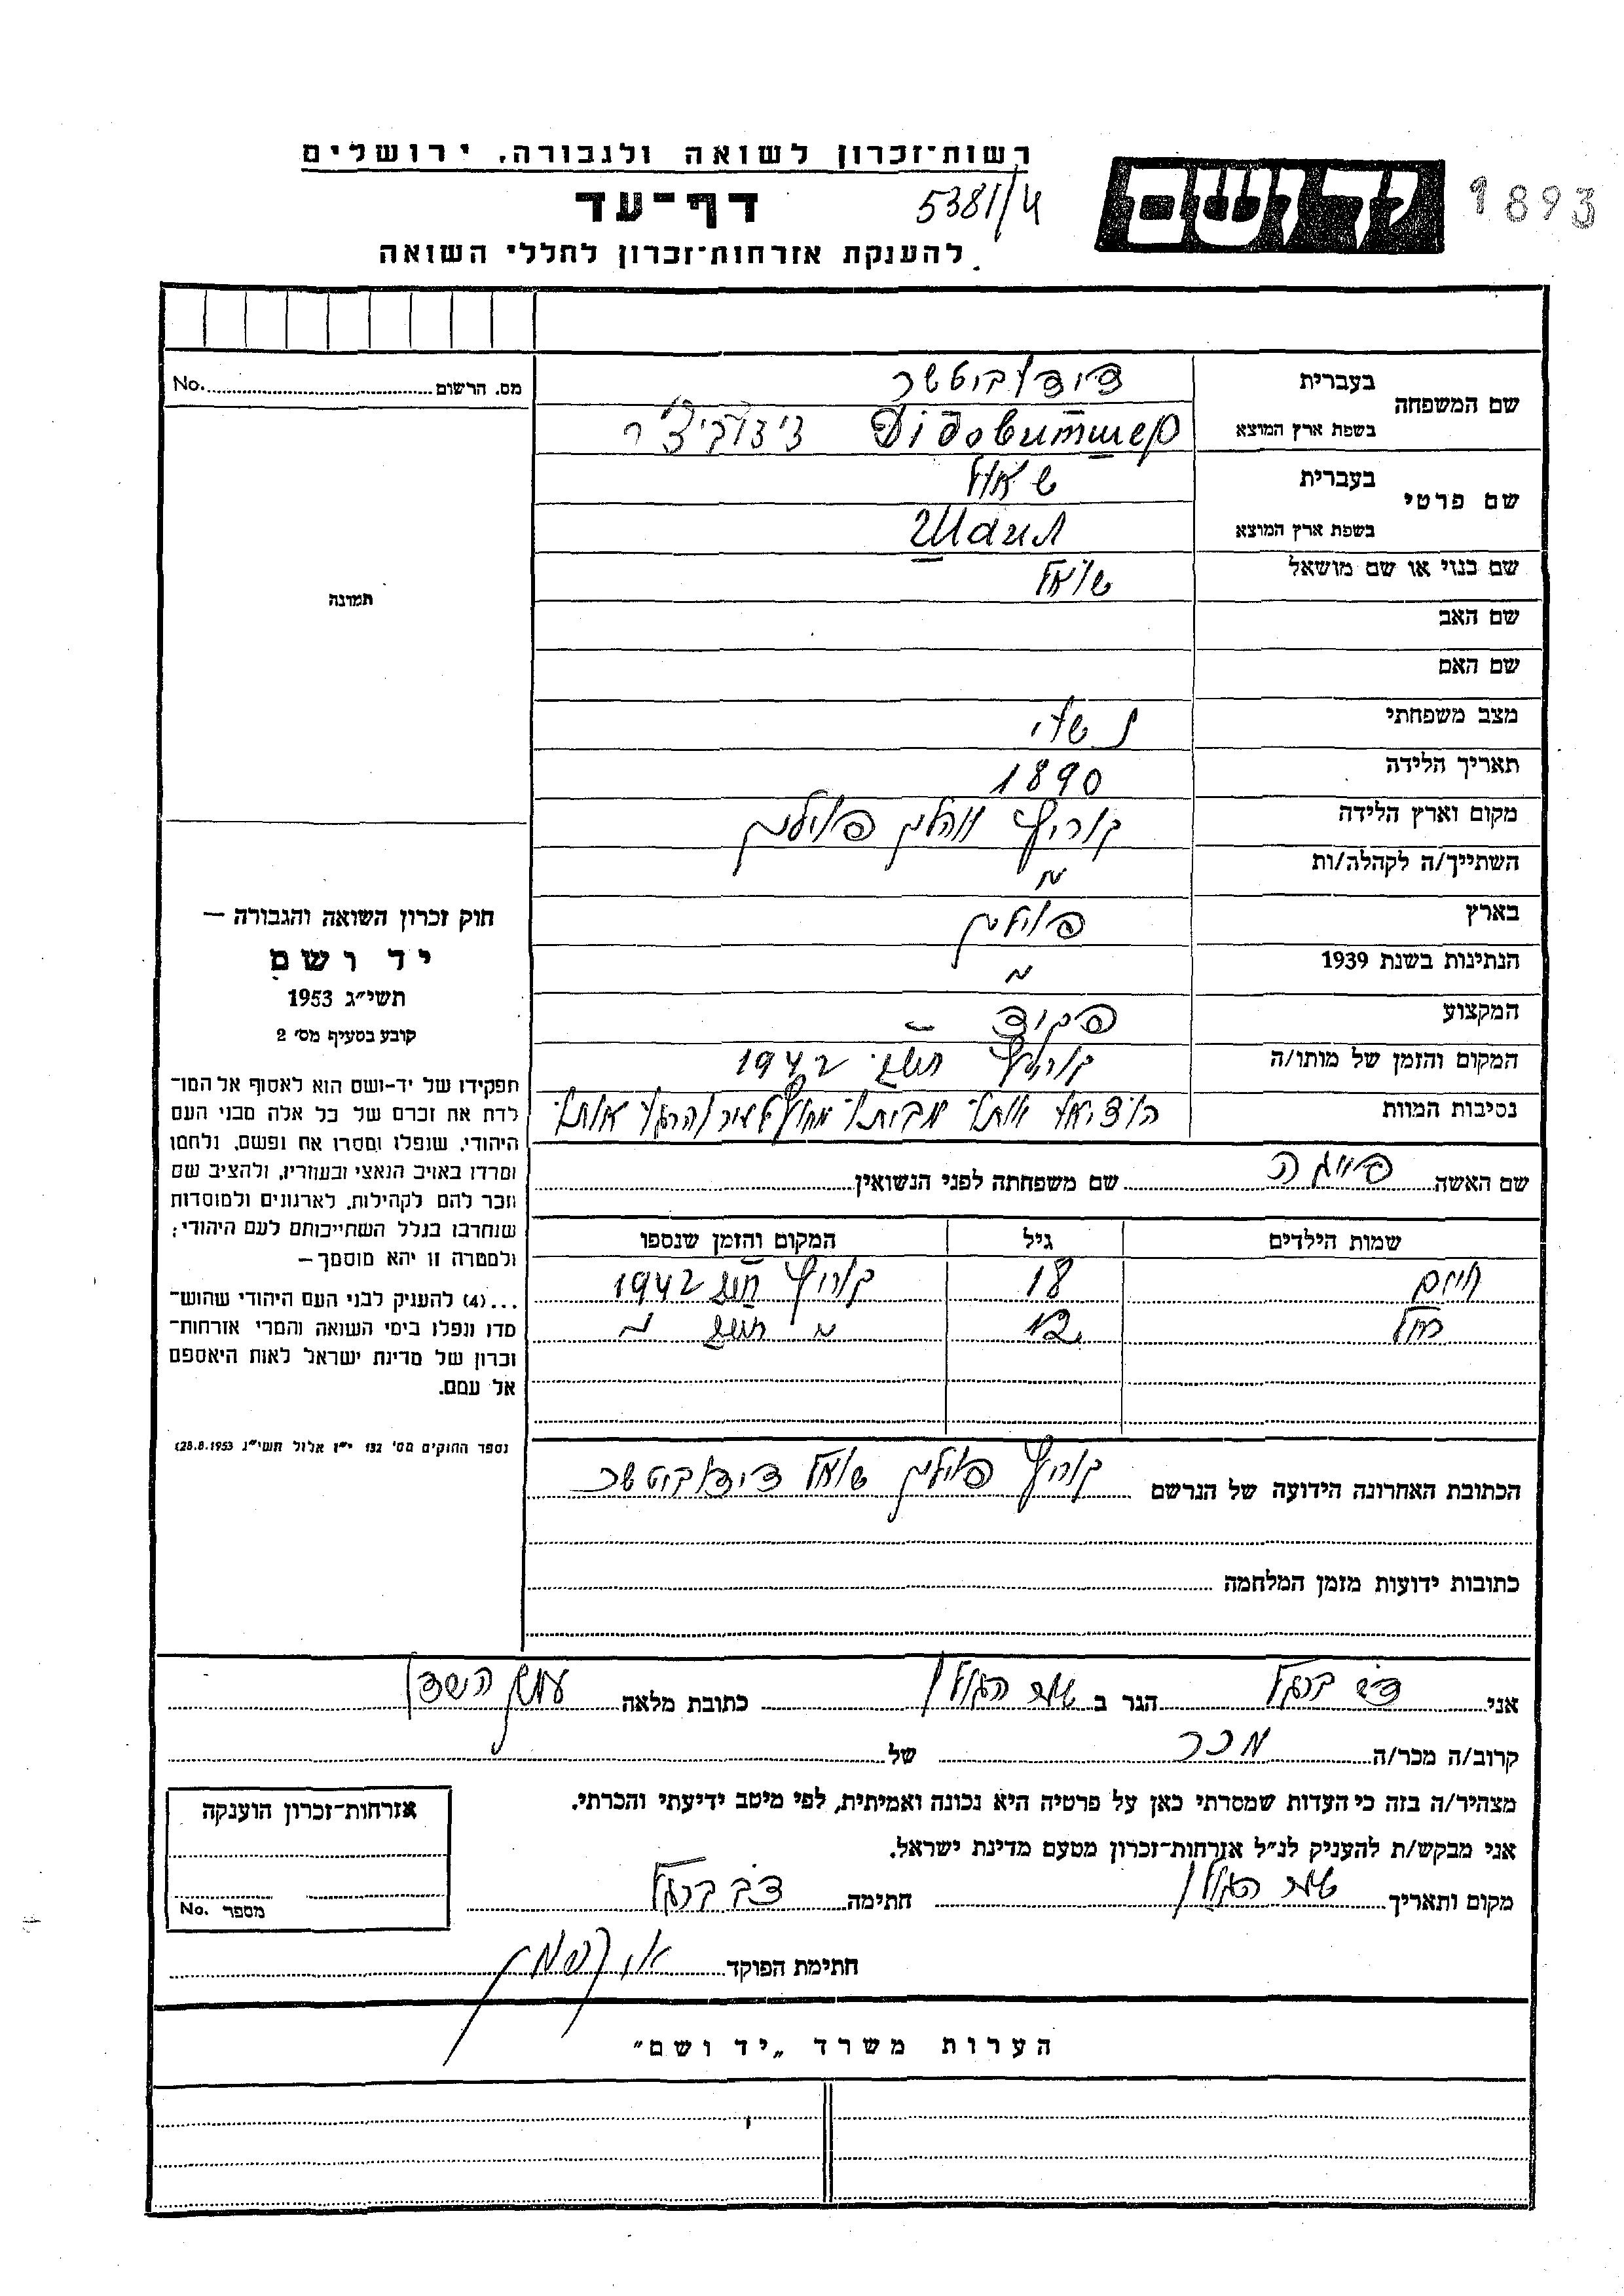 רשות־זכרון לשואה ולגבורה. ירושלים
1893
5381/4
דף־עד
להענקת אזרחות־זכרון לחללי השואה
מס. הרשום No.
שם המשפחה
בעברית דידוביטשר
בשפת ארץ המוצא Didoвитшер דידוביצ'ר
שם פרטי
בעברית שאול
בשפת ארץ המוצא
שם כנוי או שם מושאל שואל
שם האב
שם האם
מצב משפחתי נשוי
תאריך הלידה 1890
מקום וארץ הלידה קוריץ ווהלין פולין
השתייך/ה לקהלה/ות "
בארץ פולין
הנתינות בשנת 1939 "
המקצוע פקיד
המקום והזמן של מותו/ה קוריץ 1942
נסיבות המוות הוציאו אותו מביתו מחוץ לעיר והרגו אותו
תמונה
חוק זכרון השואה והגבורה —
יד ושם
תשי״ג 1953
קובע בסעיף מס׳ 2
תפקידו של יד-ושם הוא לאסוף אל המו־
לדת את זכרם של כל אלה מבני העם
היהודי, שנפלו ומסרו את נפשם, נלחמו
ומרדו באויב הנאצי ובעוזריו, ולהציב שם
וזכר להם לקהילות, לארגונים ולמוסדות
שנחרבו בגלל השתייכותם לעם היהודי;
ולמטרה זו יהא מוסמך—
...(4) להעניק לבני העם היהודי שהוש־
מדו ונפלו בימי השואה והמרי אזרחות־
זכרון של מדינת ישראל לאות היאספם
אל עמם.
(ספר החוקים מס׳ 132 י״ז אלול תשי״ג 28.8.1953)
שם האשה פייגה שם משפחתה לפני הנשואין
שמות הילדים גיל המקום והזמן שנספו
חיים 18 קוריץ 1942
רחל 12 " "
הכתובת האחרונה הידועה של הנרשם קוריץ פולין שואל דידוביטשר
כתובות ידועות מזמן המלחמה
אני דב ברגל הגר ב כתובת מלאה עמק השרון
קרוב/ה מכר/ה מכר של
מצהיר/ה בזה כי העדות שמסרתי כאן על פרטיה היא נכונה ואמיתית, לפי מיטב ידיעתי והכרתי.
אני מבקש/ת להעניק לנ״ל אזרחות־זכרון מטעם מדינת ישראל.
מקום ותאריך חתימה דב ברגל
אזרחות־זכרון הוענקה
מספר No.
חתימת הפוקד
הערות משרד „יד ושם״